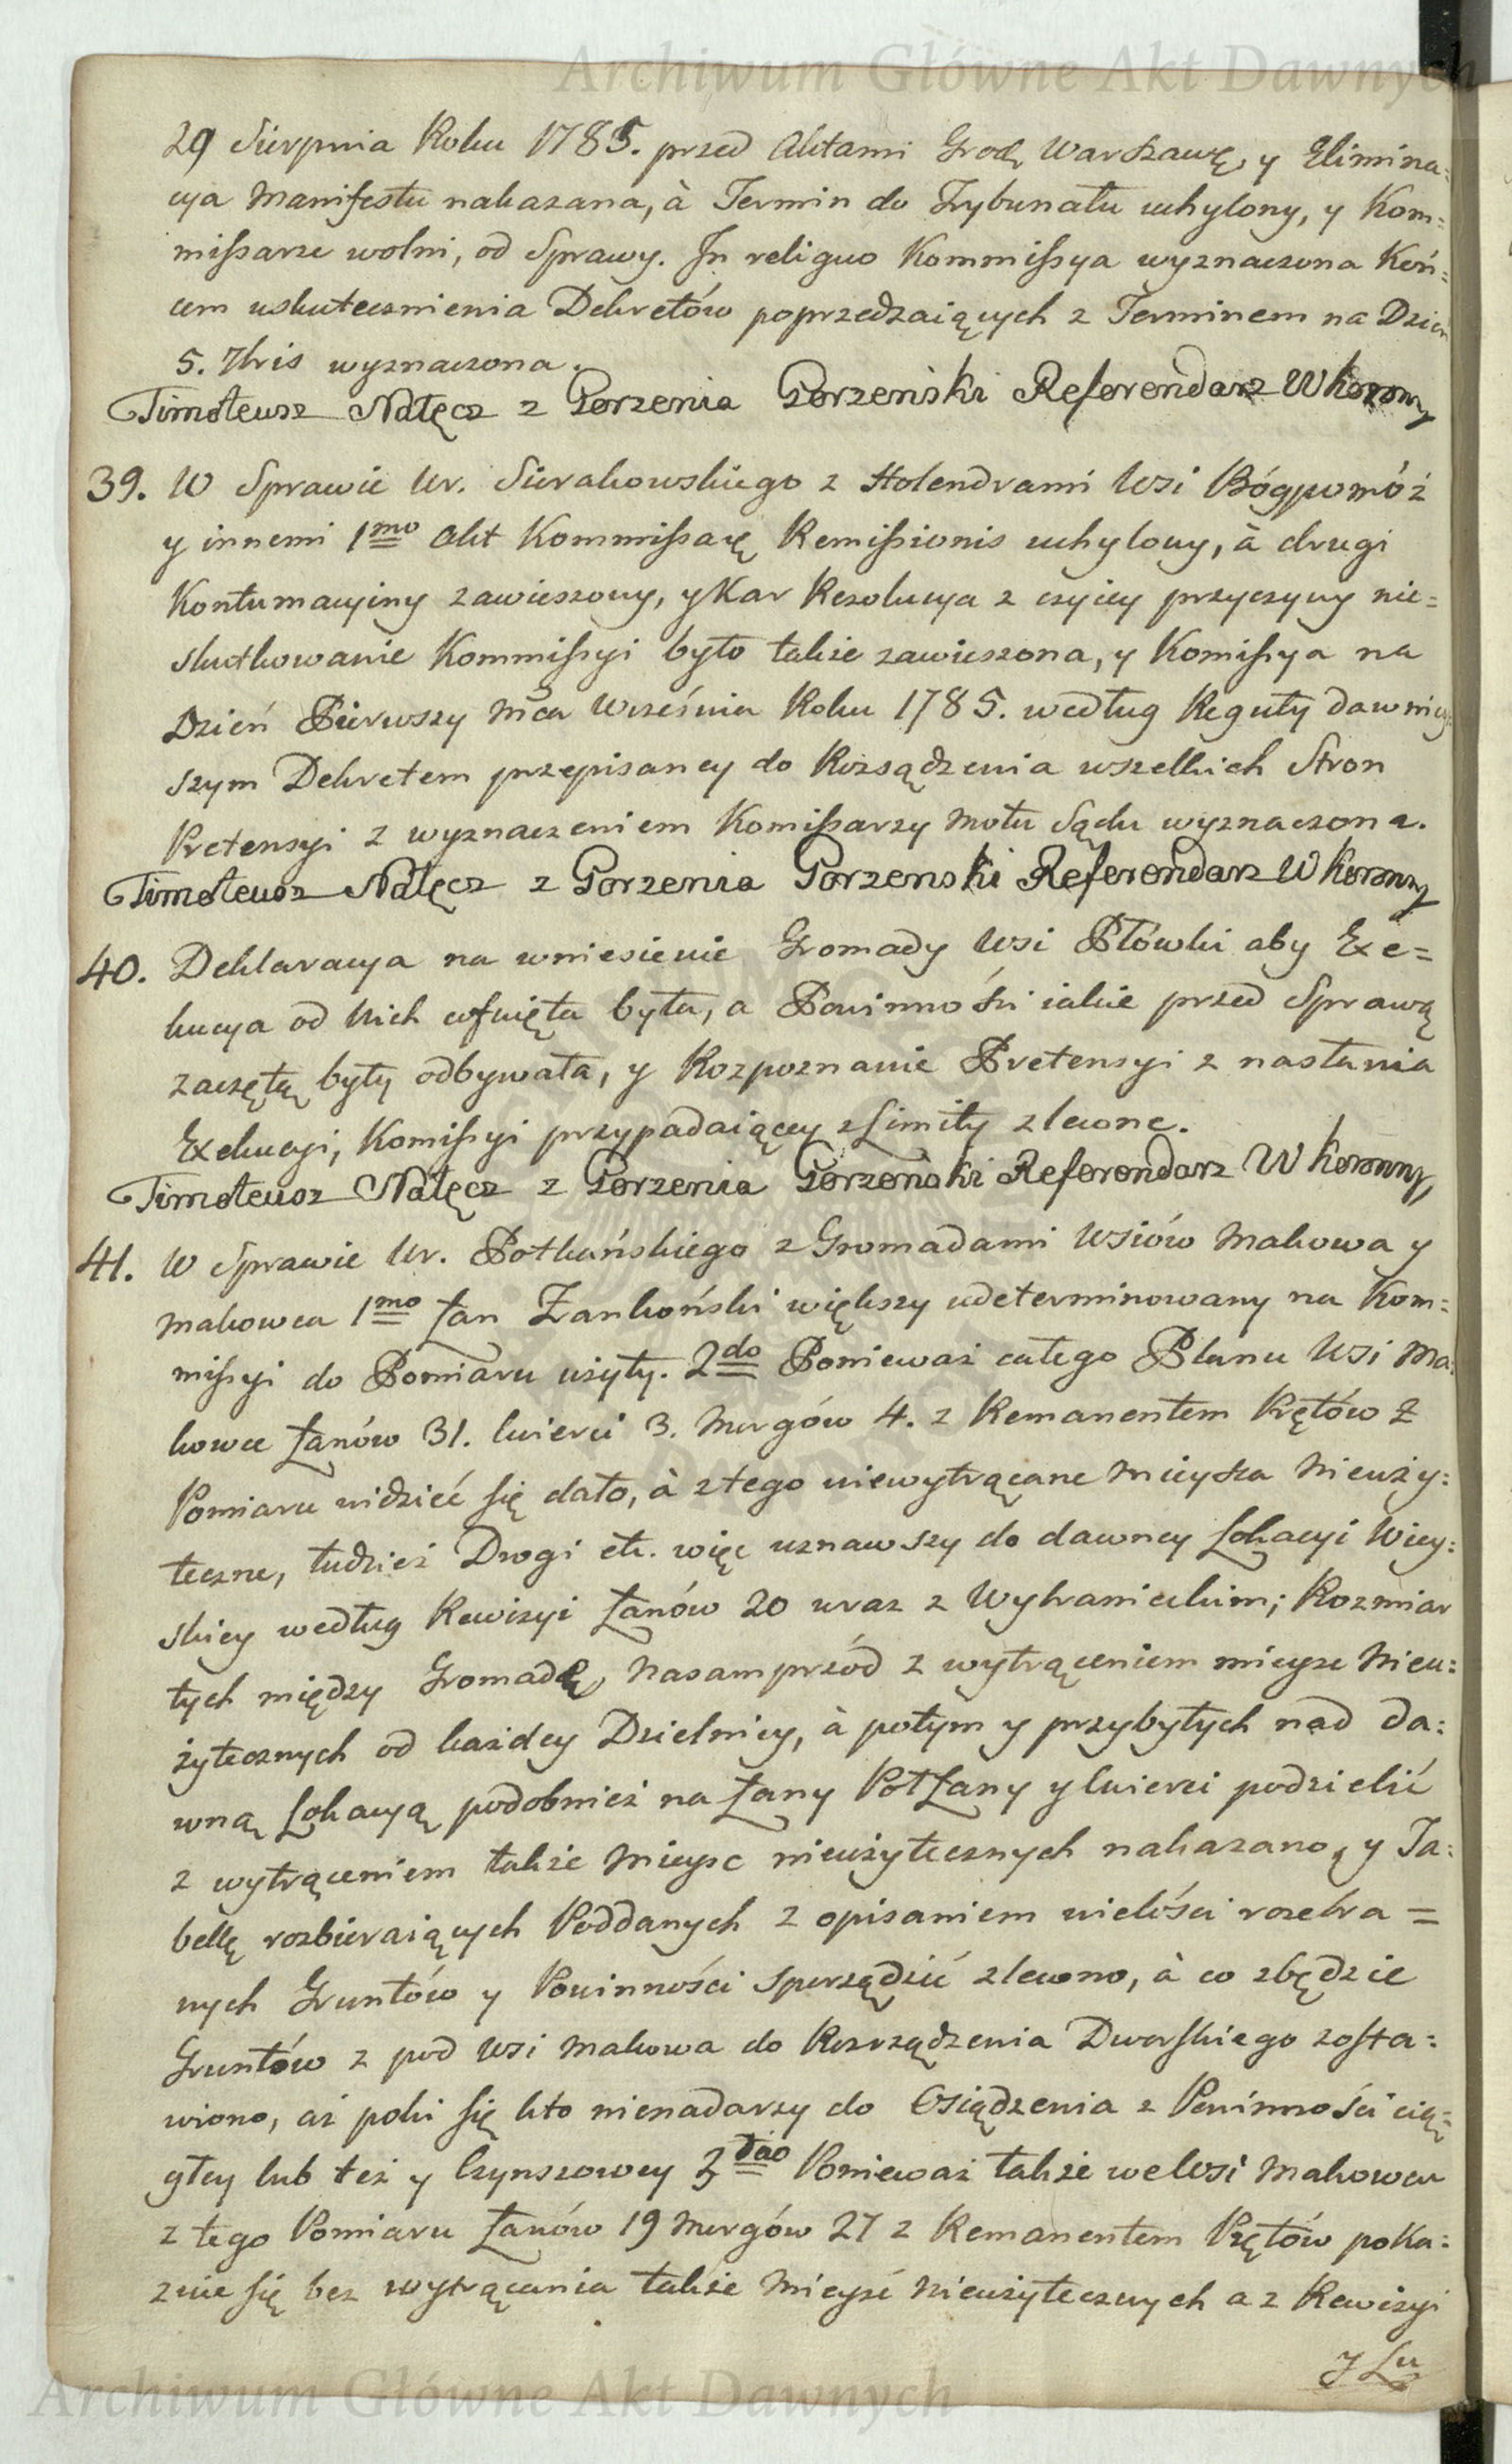 Archiwum Główne Akt Dawnych
29 Sierpnia Roku 1785. przed Aktami Grodz. Warszawę, y Elimina=
cya Manifestu nakazana, à Termin do Trybunatu uchylony, y Kom=
mißarze wolni, od Sprawy. In reliquo Kommißya wyznaczona Koń=
cem uskutecznienia Dekretów poprzedzaiących z Terminem na Dzień
5. 7bris wyznaczona.
Timoteusz Nałęcz z Gorzenia Gorzeński Referendarz W Koronny
39. W Sprawie Ur. Sierakowskiego z Holendrami Wsi Bógpomóż
y innemi 1mo Akt Kommißarę Remißionis uchylony, à drugi
Kontumacyiny zawieszony, y Kar Rezolucya z czyiey przyczyny nie=
skutkowanie Kommißyi było także zawieszona, y Komißya na
Dzień Pierwszy Mca Września Roku 1785. według Reguły dawniey=
szym Dekretem przepisaney do Rozsądzenia wszelkich Stron
Pretensyi z wyznaczeniem Komißarzy Motu Sądu wyznaczona.
Timoteusz Nałęcz z Gorzenia Gorzenski Referendarz W Koronny
40. Deklaracya na wniesienie Gromady Wsi Płówki aby Exe=
kucya od Nich cofnięta była, a Powinności iakie przed Sprawą
zaczętą były odbywała, y Rozpoznanie Pretensyi z nasłania
Exekucyi, Komißyi przypadaiącey z Limity zlecone.
Timoteusz Nałęcz z Gorzenia Gorzeński Referendarz W Koronny
41. W Sprawie Ur. Potkańskiego z Gromadami Wsiów Makowa y
Makowca 1mo Łan Frankoński większy udeterminowany na Kom=
mißyi do Pomiaru użyty. 2do Ponieważ całego Planu Wsi Ma=
kowa Łanów 31. kwierci 3. Morgów 4. z Remanentem Prętów z
Pomiaru widzieć się dało, à z tego niewytrącane Mieysca Nieuży=
teczne, tudzież Drogi etc. więc uznawszy do dawney Lokacyi Wiey=
skiey według Rewizyi Łanów 20 wraz z Wybranieckim; Rozmiar
tych między Gromadę, Nasamprzód z wytrąceniem mieysc Nieu=
żytecznych od każdey Dzielnicy, à potym y przybyłych nad da=
wną Lokacyą podobnież na Łany Półłany y kwierci podzielić
z wytrąceniem także Mieysc nieużytecznych nakazano, y Ta=
bellę rozbieraiących Poddanych z opisaniem wielości rozebra=
nych Gruntów y Powinności sporządzić zlecono, à co zbędzie
Gruntów z pod Wsi Makowa do Rozrządzenia Dworskiego zosta=
wiono, aż poki się kto nienadarzy do Osiądzenia z Powinności cią=
głey lub też y Czynszowey 3tio Ponieważ także we Wsi Makowcu
z tego Pomiaru Łanów 19 Morgów 27 z Remanentem Prętów poka=
zuie się bez wytrącania także Mieysc Nieużytecznych a z Rewizyi
y Lu
Archiwum Główne Akt Dawnych